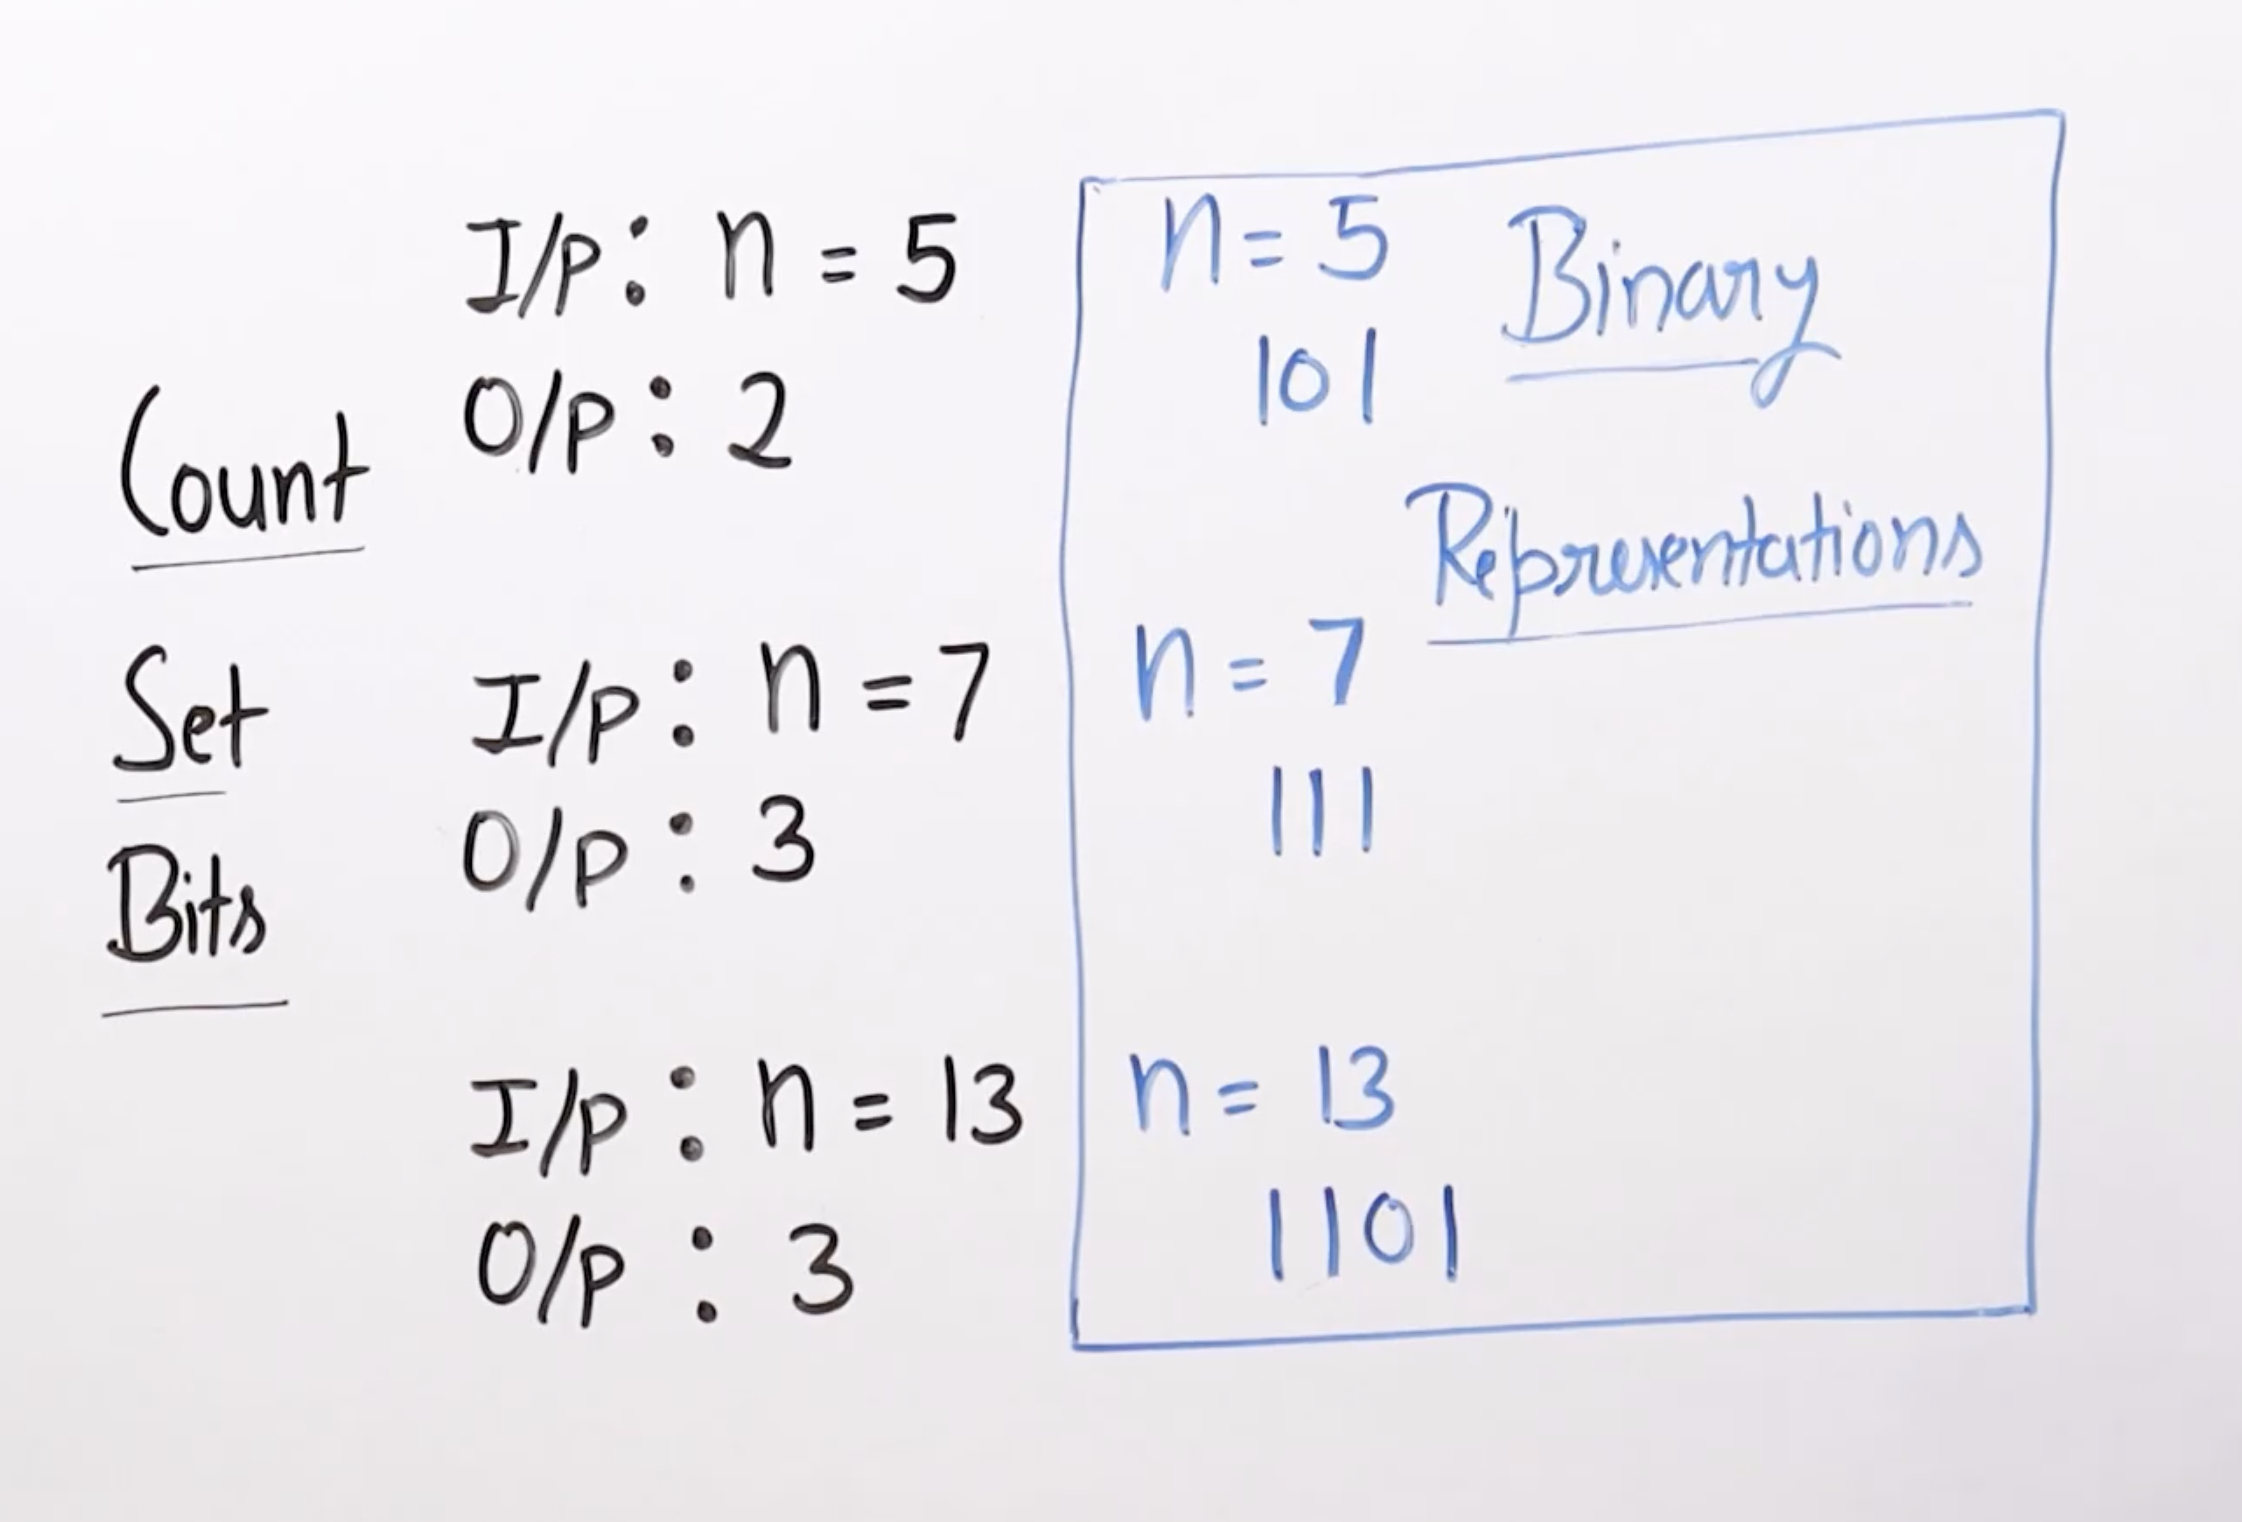 Count
Set
Bits
I/p: n = 5
O/p: 2
I/p: n = 7
O/p: 3
I/p: n = 13
O/p: 3
Binary
Representations
n = 5
101
n = 7
111
n = 13
1101